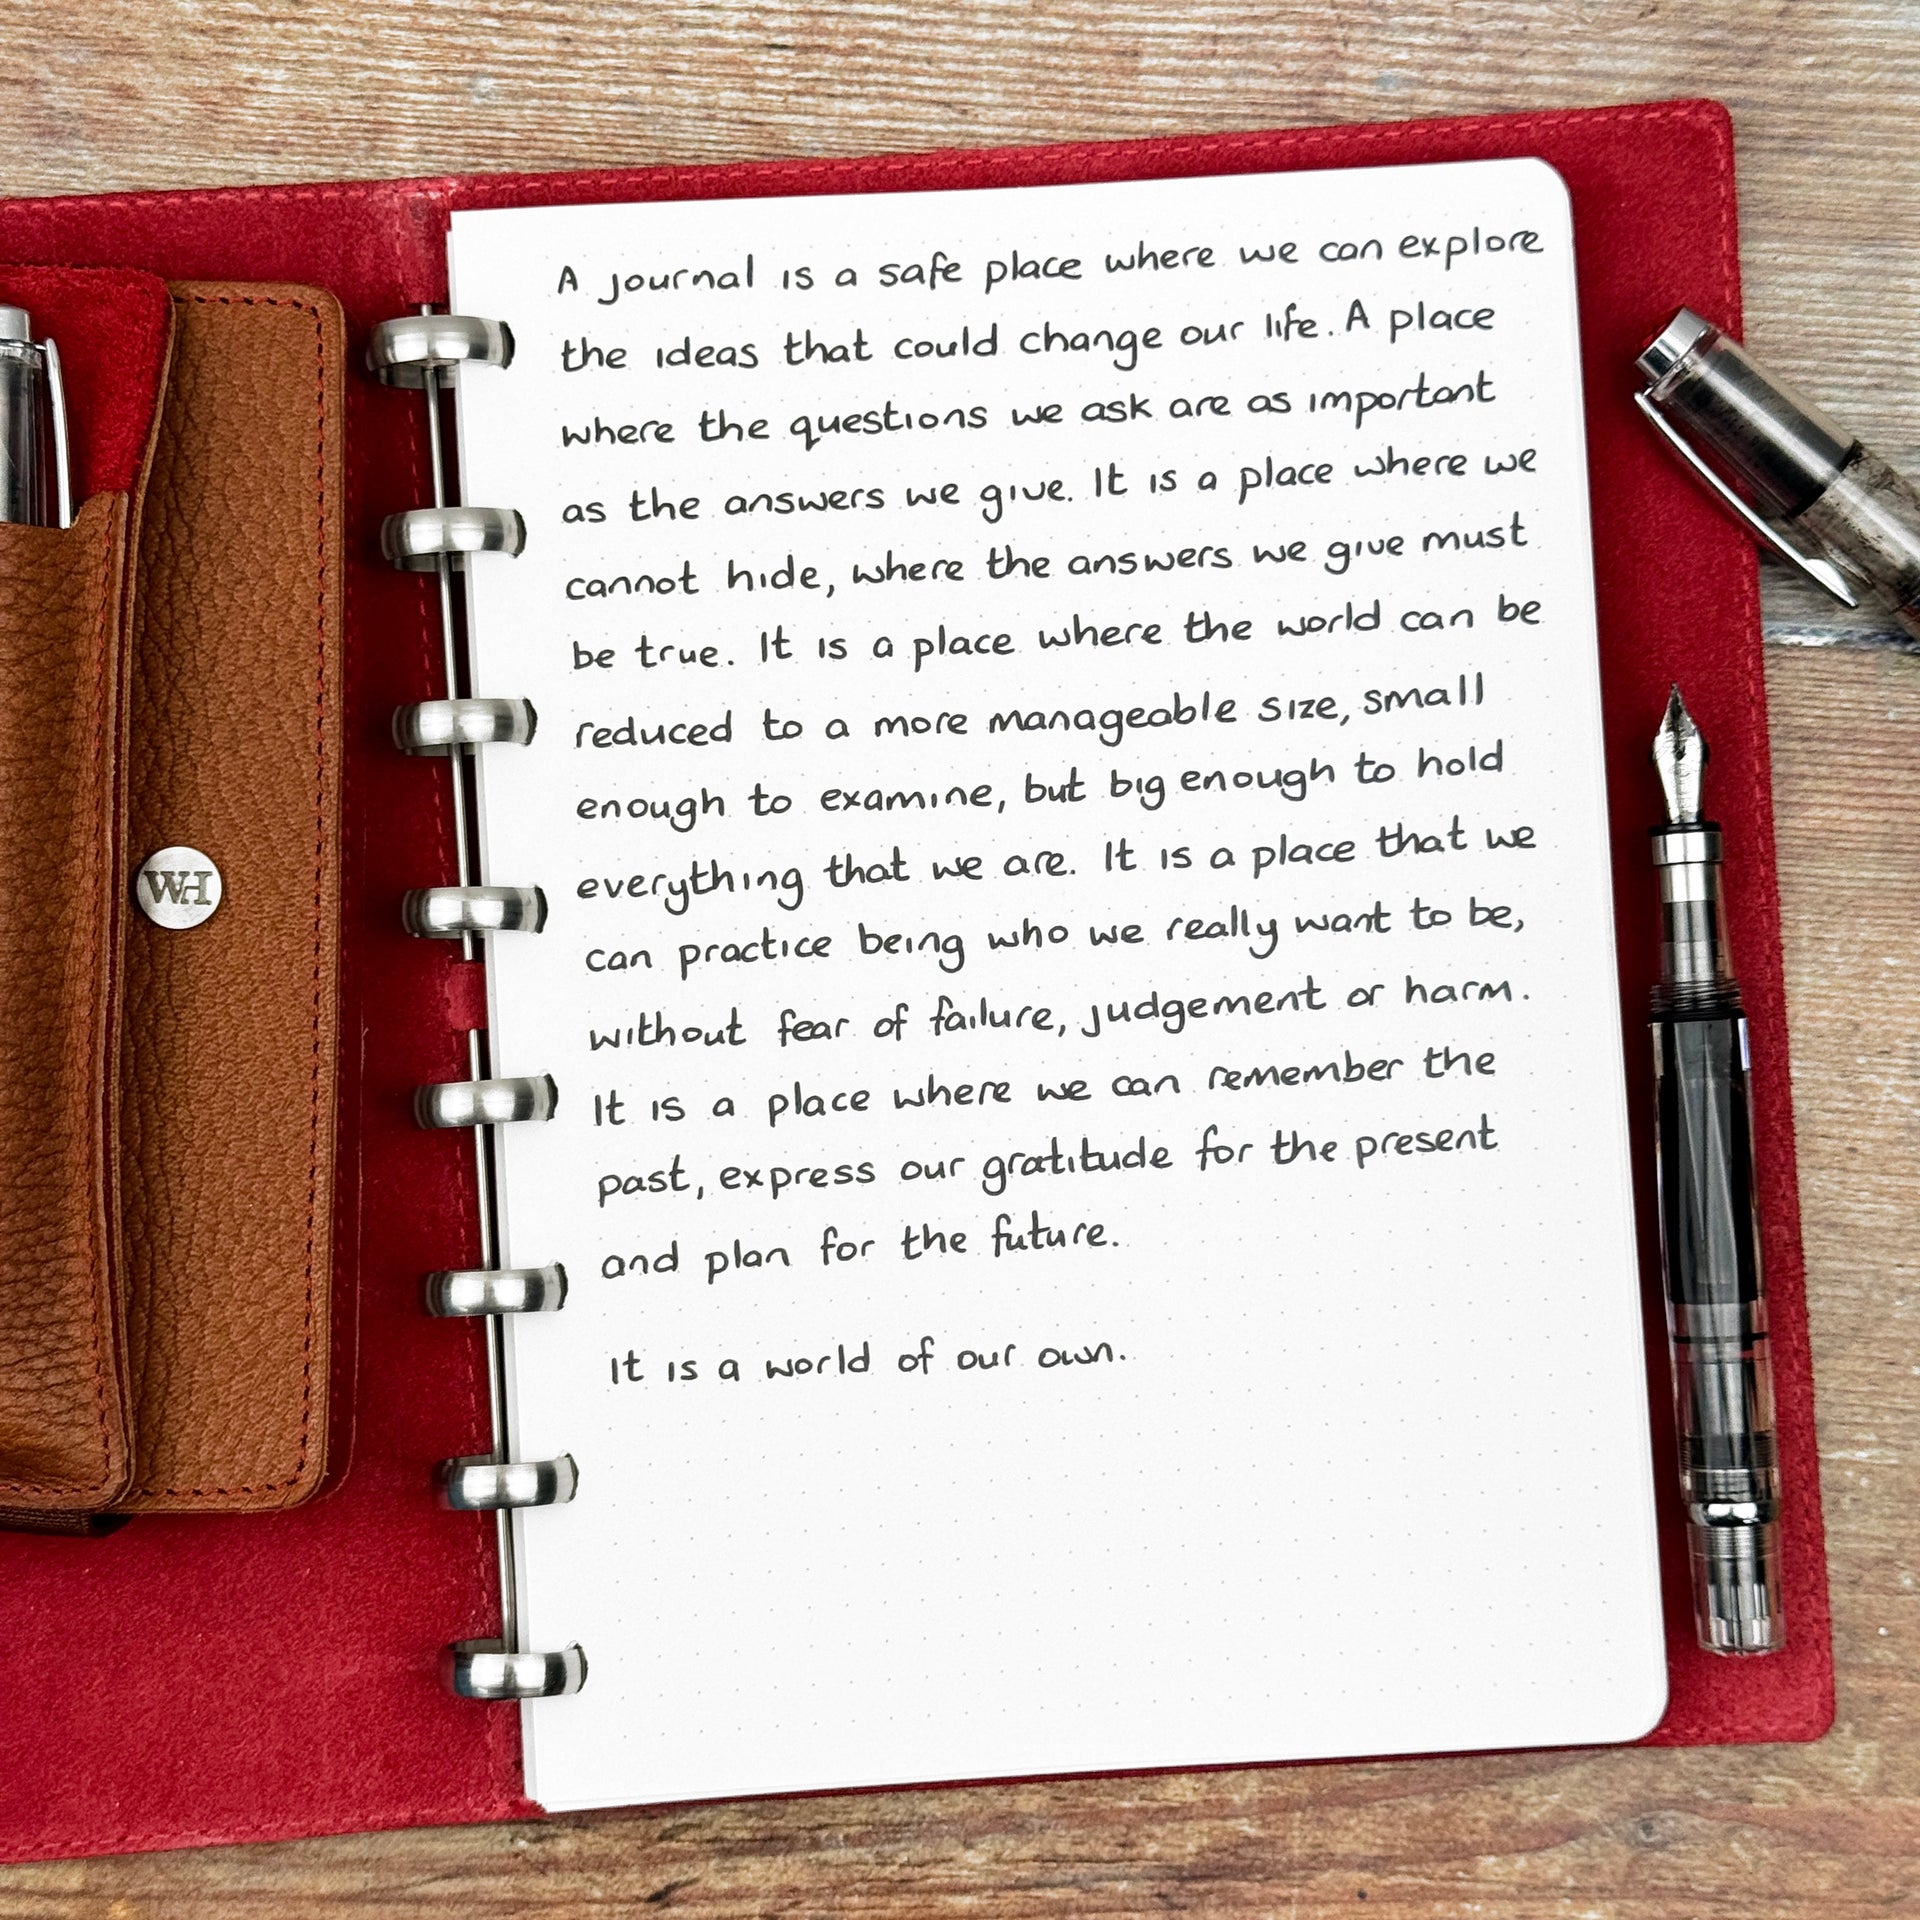 A journal is a safe place where we can explore
the ideas that could change our life. A place
where the questions we ask are as important
as the answers we give. It is a place where we
cannot hide, where the answers we give must
be true. It is a place where the world can be
reduced to a more manageable size, small
enough to examine, but big enough to hold
everything that we are. It is a place that we
can practice being who we really want to be,
without fear of failure, judgement or harm.
It is a place where we can remember the
past, express our gratitude for the present
and plan for the future.
It is a world of our own.
WH